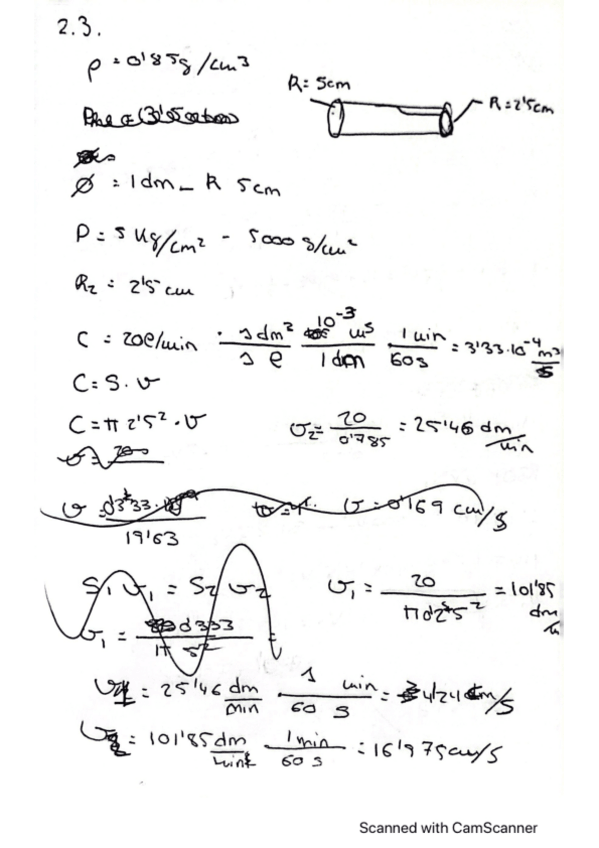 2.3.
ρ = 0'85g/cm³
R = 5cm
R = 2'5cm
Ø = 1dm - R 5cm
P = 5 Kg/cm² - 5000 g/cm²
R₂ = 2'5 cm
C = 20ℓ/min · 1dm² / 1ℓ 10⁻³ m³ / 1dm 1min / 60s = 3'33·10⁻⁴ m³/s
C = S · v
C = π 2'5² · v
v₂ = 20 / 0'785 = 25'46 dm/min
v = / 19'63
v = 0'169 cm/s
S₁ v₁ = S₂ v₂
v₁ = 20 / = 101'85 dm
v₁ = / π 5² =
= 25'46 dm/min 1 min / 60 s = 4'24 cm/s
= 101'85 dm/min 1min / 60 s = 16'975 cm/s
Scanned with CamScanner